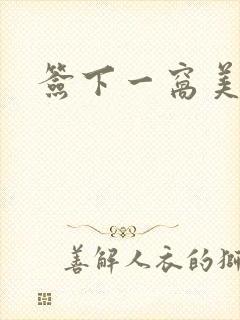 簽下一窩美
善解人衣的